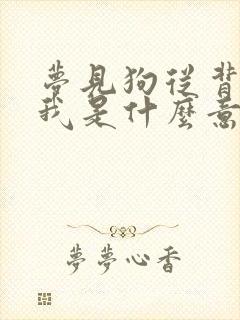 夢見狗從背
我是什麼意
夢夢心香